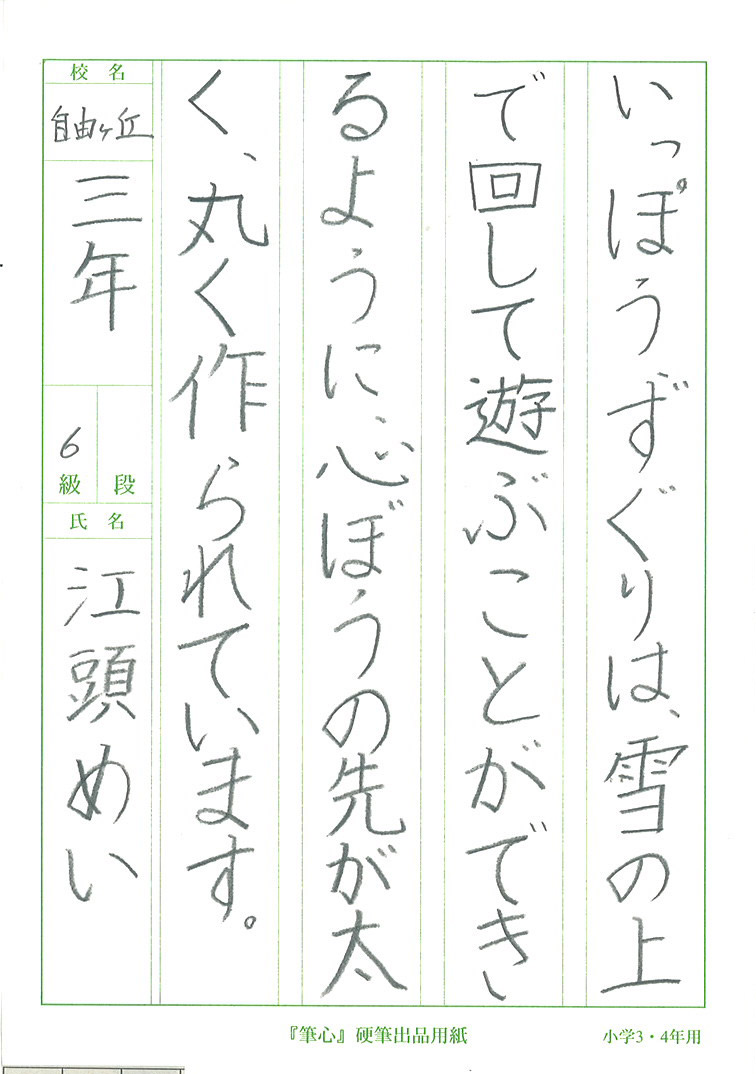 いっぽうずぐりは、雪の上
で回して遊ぶことができ
るように、心ぼうの先が太
く、丸く作られています。
校名
自由ヶ丘
三年
段
6級
氏名
江頭めい
『筆心』硬筆出品用紙
小学3・4年用